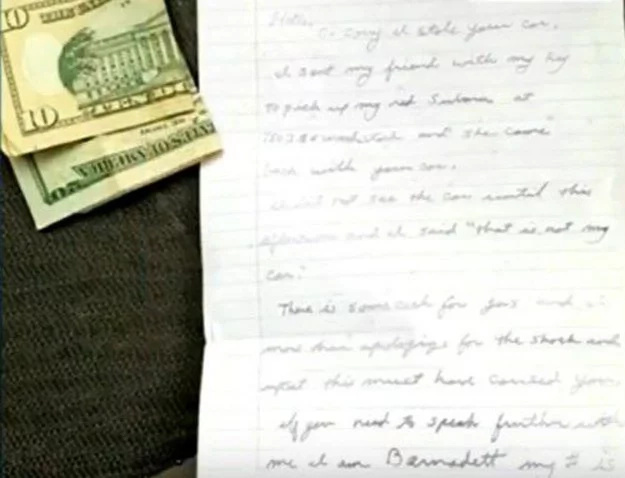 10
10
Hello,
So sorry I stole your car.
I sent my friend with my key
to pick up my red Subaru at
woodstock and she came
back with your car.
I did not see the car until this
afternoon and I said "that is not my
car."
There is some cash for gas and I
more than apologize for the shock and
upset this must have caused you
If you need to speak further with
me I am Bannadett my # is